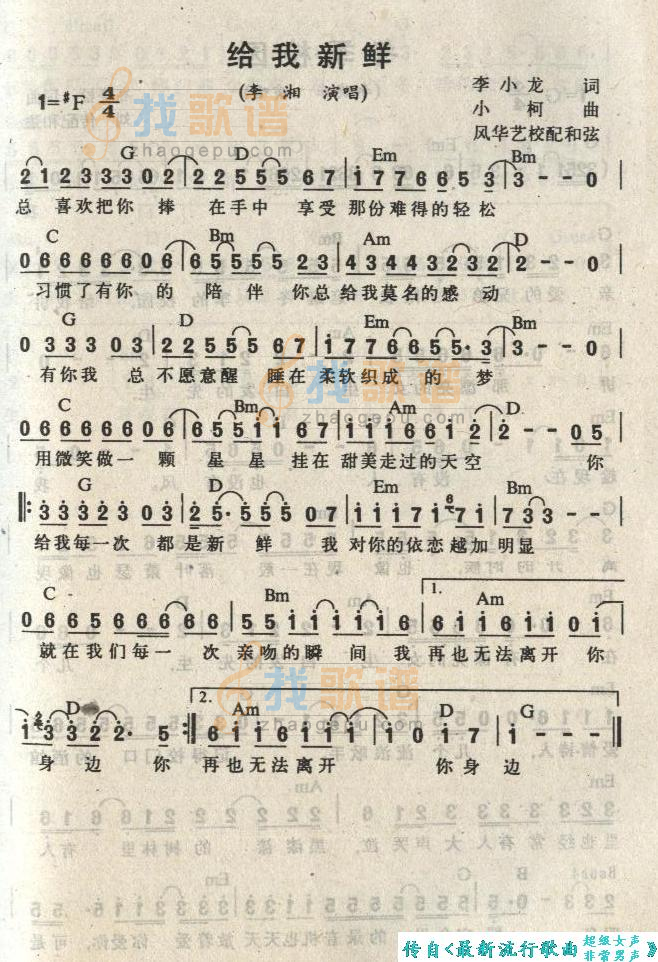 给我新鲜
(李湘 演唱)
1=#F 4/4
李小龙 词
小柯 曲
风华艺校配和弦
找歌谱
zhaogepu.com
G D Em Bm
2 1 2 3 3 3 0 2 | 2 2 5 5 5 6 7 | 1 7 7 6 6 5 3 | 3 - - 0
总喜欢把你捧在手中 享受那份难得的轻松
C Bm Am D
0 6 6 6 6 6 0 6 | 6 5 5 5 5 2 3 | 4 3 4 4 3 2 3 2 | 2 - - 0
习惯了有你的陪伴 你总给我莫名的感动
G D Em Bm
0 3 3 3 3 0 3 | 2 2 5 5 5 6 7 | 1 7 7 6 6 5 5· 3 | 3 - - 0
有你我总不愿意醒 睡在柔软织成的梦
C Bm Am D
0 6 6 6 6 6 0 6 | 6 5 5 1 1 6 7 | 1 1 1 6 6 1 2 | 2 - - 0 5
用微笑做一颗星星 挂在甜美走过的天空 你
G D Em Bm
3 3 3 2 3 0 3 | 2 5· 5 5 5 0 7 | 1 1 1 7 1 7 1 | 7 3 3 - -
给我每一次都是新鲜 我对你的依恋越加明显
C Bm 1. Am
0 6 6 5 6 6 6 6 | 5 5 1 1 1 1 1 | 6 1 1 6 1 1 0 1
就在我们每一次亲吻的瞬间 我再也无法离开 你
D 2. Am D G
1 3 3 2 2· 5 :| 6 1 1 6 1 1 | 1 0 1 7 | 1 - - -
身边 你 再也无法离开 你身边
传自《最新流行歌曲 超级女声 非常男声》